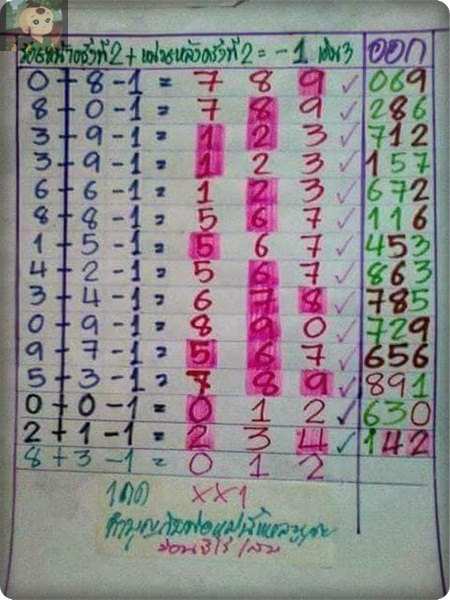 ครั้งที่2 + หลังครั้งที่2 = -1 เป็น3 ออก
0+8-1 = 7 8 9 ✓ 069
8+0-1 = 7 8 9 ✓ 286
3+9-1 = 1 2 3 ✓ 712
3+9-1 = 1 2 3 ✓ 157
6+6-1 = 1 2 3 ✓ 672
8+8-1 = 5 6 7 ✓ 116
1+5-1 = 5 6 7 ✓ 453
4+2-1 = 5 6 7 ✓ 863
3+4-1 = 6 7 8 ✓ 785
0+9-1 = 8 9 0 ✓ 729
9+7-1 = 5 6 7 ✓ 656
5+3-1 = 7 8 9 ✓ 891
0+0-1 = 0 1 2 ✓ 630
2+1-1 = 2 3 4 ✓ 142
8+3-1 = 0 1 2
XX1